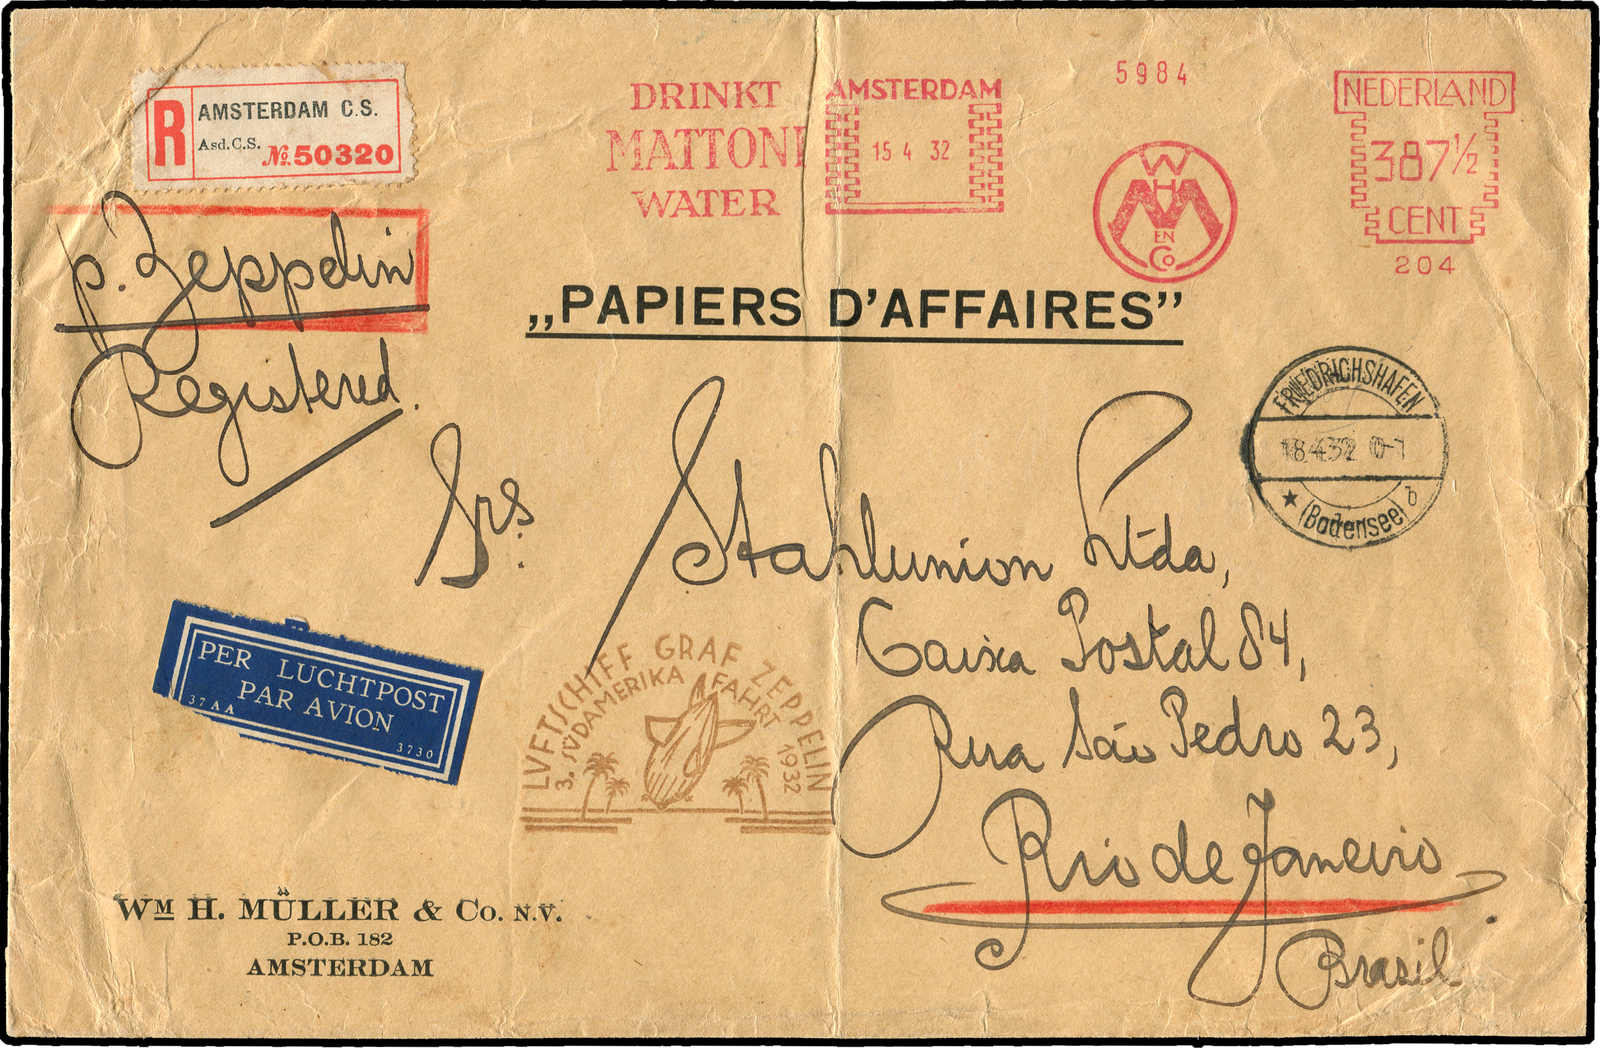 R
AMSTERDAM C.S.
Asd.C.S. № 50320
DRINKT
MATTONI
WATER
AMSTERDAM
15 4 32
5984
W
M H M
EN
Co
NEDERLAND
387½
CENT
204
p. Zeppelin
Registered.
„PAPIERS D'AFFAIRES”
FRIEDRICHSHAFEN
18.4.32 0-1
★ (Bodensee) b
Srs. Stahlunion Ltda,
Caixa Postal 84,
Rua São Pedro 23,
Rio de Janeiro
Brasil.
PER LUCHTPOST
PAR AVION
37AA
3730
LUFTSCHIFF GRAF ZEPPELIN
3. SÜDAMERIKA FAHRT 1932
WM H. MÜLLER & Co. N.V.
P.O.B. 182
AMSTERDAM